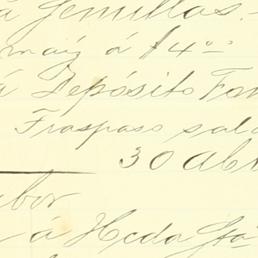 a Semillas.
maíz á $4.00
á Depósito Fon
Traspaso sald
30 Abr
á Hcda Gto